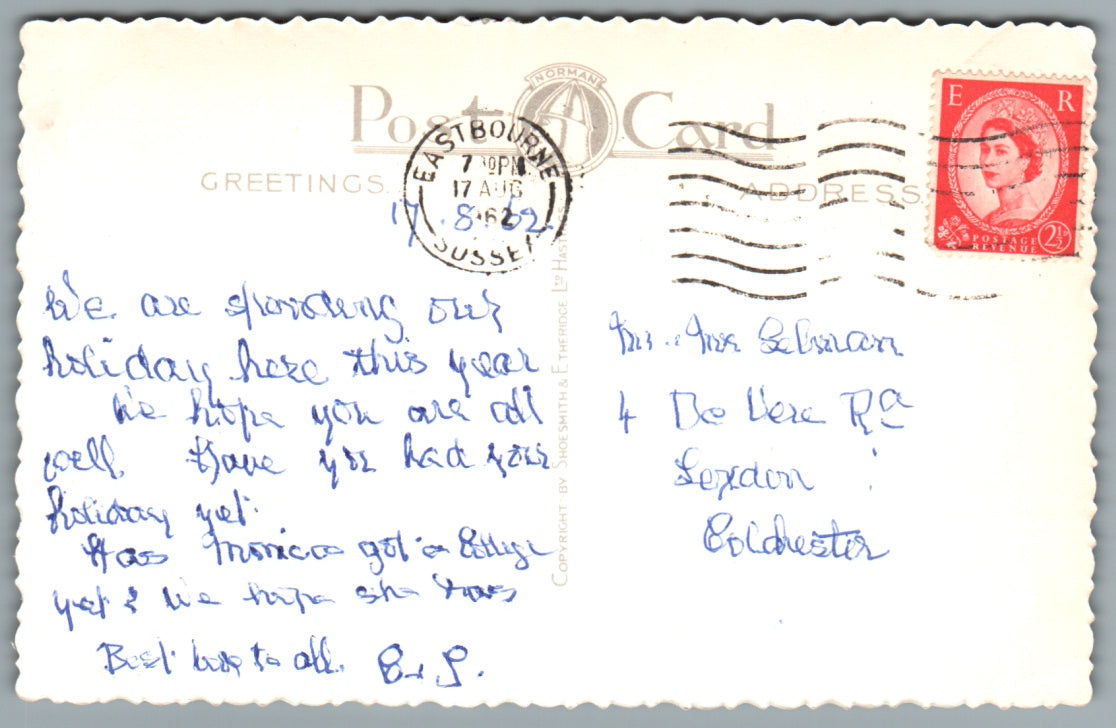 NORMAN
Post Card
GREETINGS.
ADDRESS.
EASTBOURNE
7 30PM
17 AUG
1962
SUSSEX
17. 8. 62.
E R
POSTAGE
REVENUE
2½D
COPYRIGHT BY SHOESMITH & ETHERIDGE LTD HAST
We are spending our
holiday here this year
We hope you are all
well. Have you had your
holiday yet.
Has Monica got a College
yet & We hope she has
Best love to all.
Mr. Mrs
4 De Vere Rd
Colchester